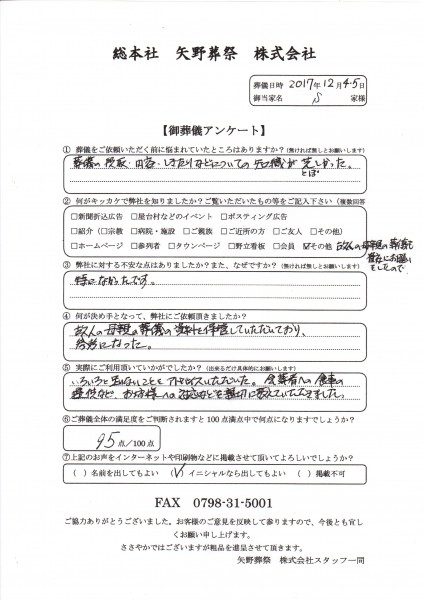 総本社 矢野葬祭 株式会社
葬儀日時 2017年12月4.5日
御当家名 S 家様
【御葬儀アンケート】
① 葬儀をご依頼いただく前に悩まれていたところはありますか？(無ければ無しとお願いします)
葬儀の段取・内容・しきたりなどについての知識が乏しかった。
とぼ
② 何がキッカケで弊社を知りましたか？ご覧いただいたもの等をご記入下さい（複数回答
□新聞折込広告 □屋台村などのイベント □ポスティング広告
□紹介（□宗教 □病院・施設 □ご親族 □ご近所の方 □ご友人 □その他）
□ホームページ □参列者 □タウンページ □野立看板 □会員 ☑その他 故人の母親の葬儀を
貴社にお願い
をしたので
③ 弊社に対する不安な点はありましたか？また、なぜですか？（無ければ無しとお願いします）
特になかったです。
④ 何が決め手となって、弊社にご依頼頂きましたか？
故人の母親の葬儀の資料を保管していただいており、
参考になった。
⑤ 実際にご利用頂いていかがでしたか？（出来るだけ具体的にお願いします）
いろいろと知らないことをアドバイスいただいた。会葬者への食事の
など、お寺様への対応などを親切に教えていただきました。
⑥ご葬儀全体の満足度をご判断されますと 100 点満点中で何点になりますでしょうか？
95 点/100点
⑦上記のお声をインターネットや印刷物などに掲載させて頂いてよろしいでしょうか？
（ ）名前を出してもよい （✓）イニシャルなら出してもよい （ ）掲載不可
FAX 0798-31-5001
ご協力ありがとうございました。お客様のご意見を反映して参りますので、今後とも宜し
くお願い申し上げます。
ささやかではございますが粗品を進呈させて頂きます。
矢野葬祭 株式会社スタッフ一同